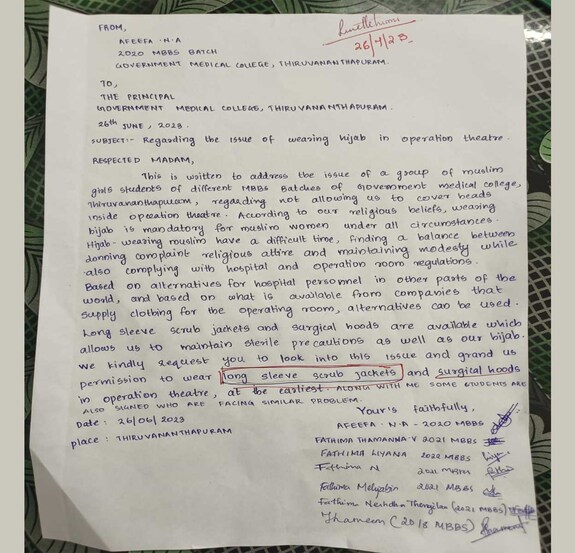 FROM,
AFEEFA · N · A
2020 MBBS BATCH
GOVERNMENT MEDICAL COLLEGE, THIRUVANANTHAPURAM.
26/4/23
TO,
THE PRINCIPAL
GOVERNMENT MEDICAL COLLEGE, THIRUVANANTHAPURAM.
26th JUNE, 2023
SUBJECT:- Regarding the issue of wearing hijab in operation theatre.
RESPECTED MADAM,
This is written to address the issue of a group of muslim
girls students of different MBBS Batches of Government medical college,
Thiruvananthapuram, regarding not allowing us to cover heads
inside operation theatre. According to our religious beliefs, wearing
hijab is mandatory for muslim women under all circumstances.
Hijab-wearing muslim have a difficult time, finding a balance between
donning complaint religious attire and maintaining modesty while
also complying with hospital and operation room regulations.
Based on alternatives for hospital personnel in other parts of the
world, and based on what is available from companies that
supply clothing for the operating room, alternatives can be used.
Long sleeve scrub jackets and surgical hoods are available which
allows us to maintain sterile precautions as well as our hijab.
We kindly request you to look into this issue and grand us
permission to wear long sleeve scrub jackets and surgical hoods
in operation theatre, at the earliest. ALONG WITH ME SOME STUDENTS ARE
ALSO SIGNED WHO ARE FACING SIMILAR PROBLEM.
Date : 26/06/2023
place : THIRUVANANTHAPURAM
Your's faithfully,
AFEEFA · N · A - 2020 MBBS
FATHIMA THAMANNA · V 2021 MBBS
FATHIMA LIYANA 2022 MBBS
Fathima N 2021 MBBS
Fathima 2021 MBBS
Fathima (2021 MBBS)
Thameem (2018 MBBS)